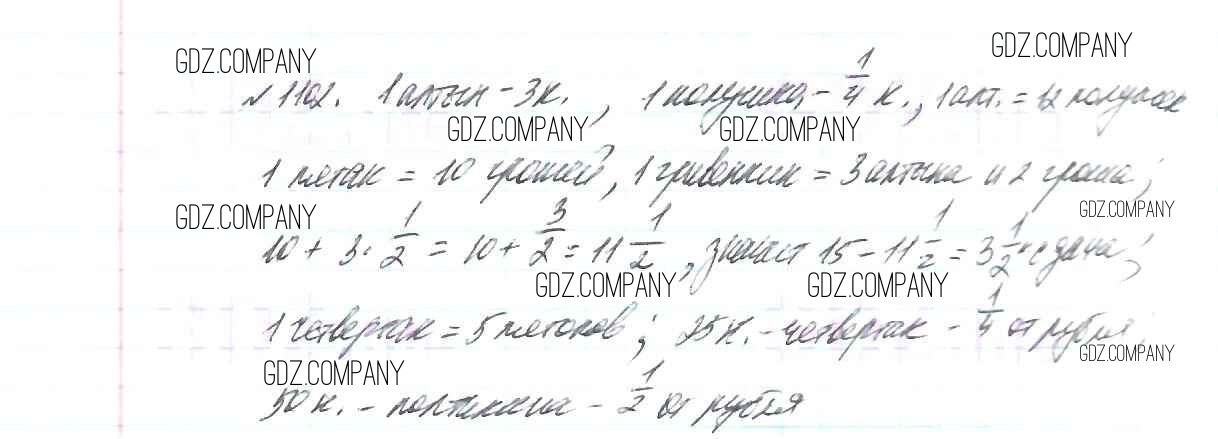 GDZ.COMPANY GDZ.COMPANY
№1102. 1 алтын - 3к., 1 полушка - 1/4 к., 1 алт. = 12 полушек
GDZ.COMPANY GDZ.COMPANY
1 пятак = 10 грошей, 1 гривенник = 3 алтына и 2 гроша;
GDZ.COMPANY GDZ.COMPANY
10 + 3 · 1/2 = 10 + 3/2 = 11 1/2, значит 15 - 11 1/2 = 3 1/2 к сдача;
GDZ.COMPANY GDZ.COMPANY
1 четвертак = 5 пятаков; 25 к. - четвертак - 1/4 от рубля
GDZ.COMPANY GDZ.COMPANY
50 к. - полтинник - 1/2 от рубля